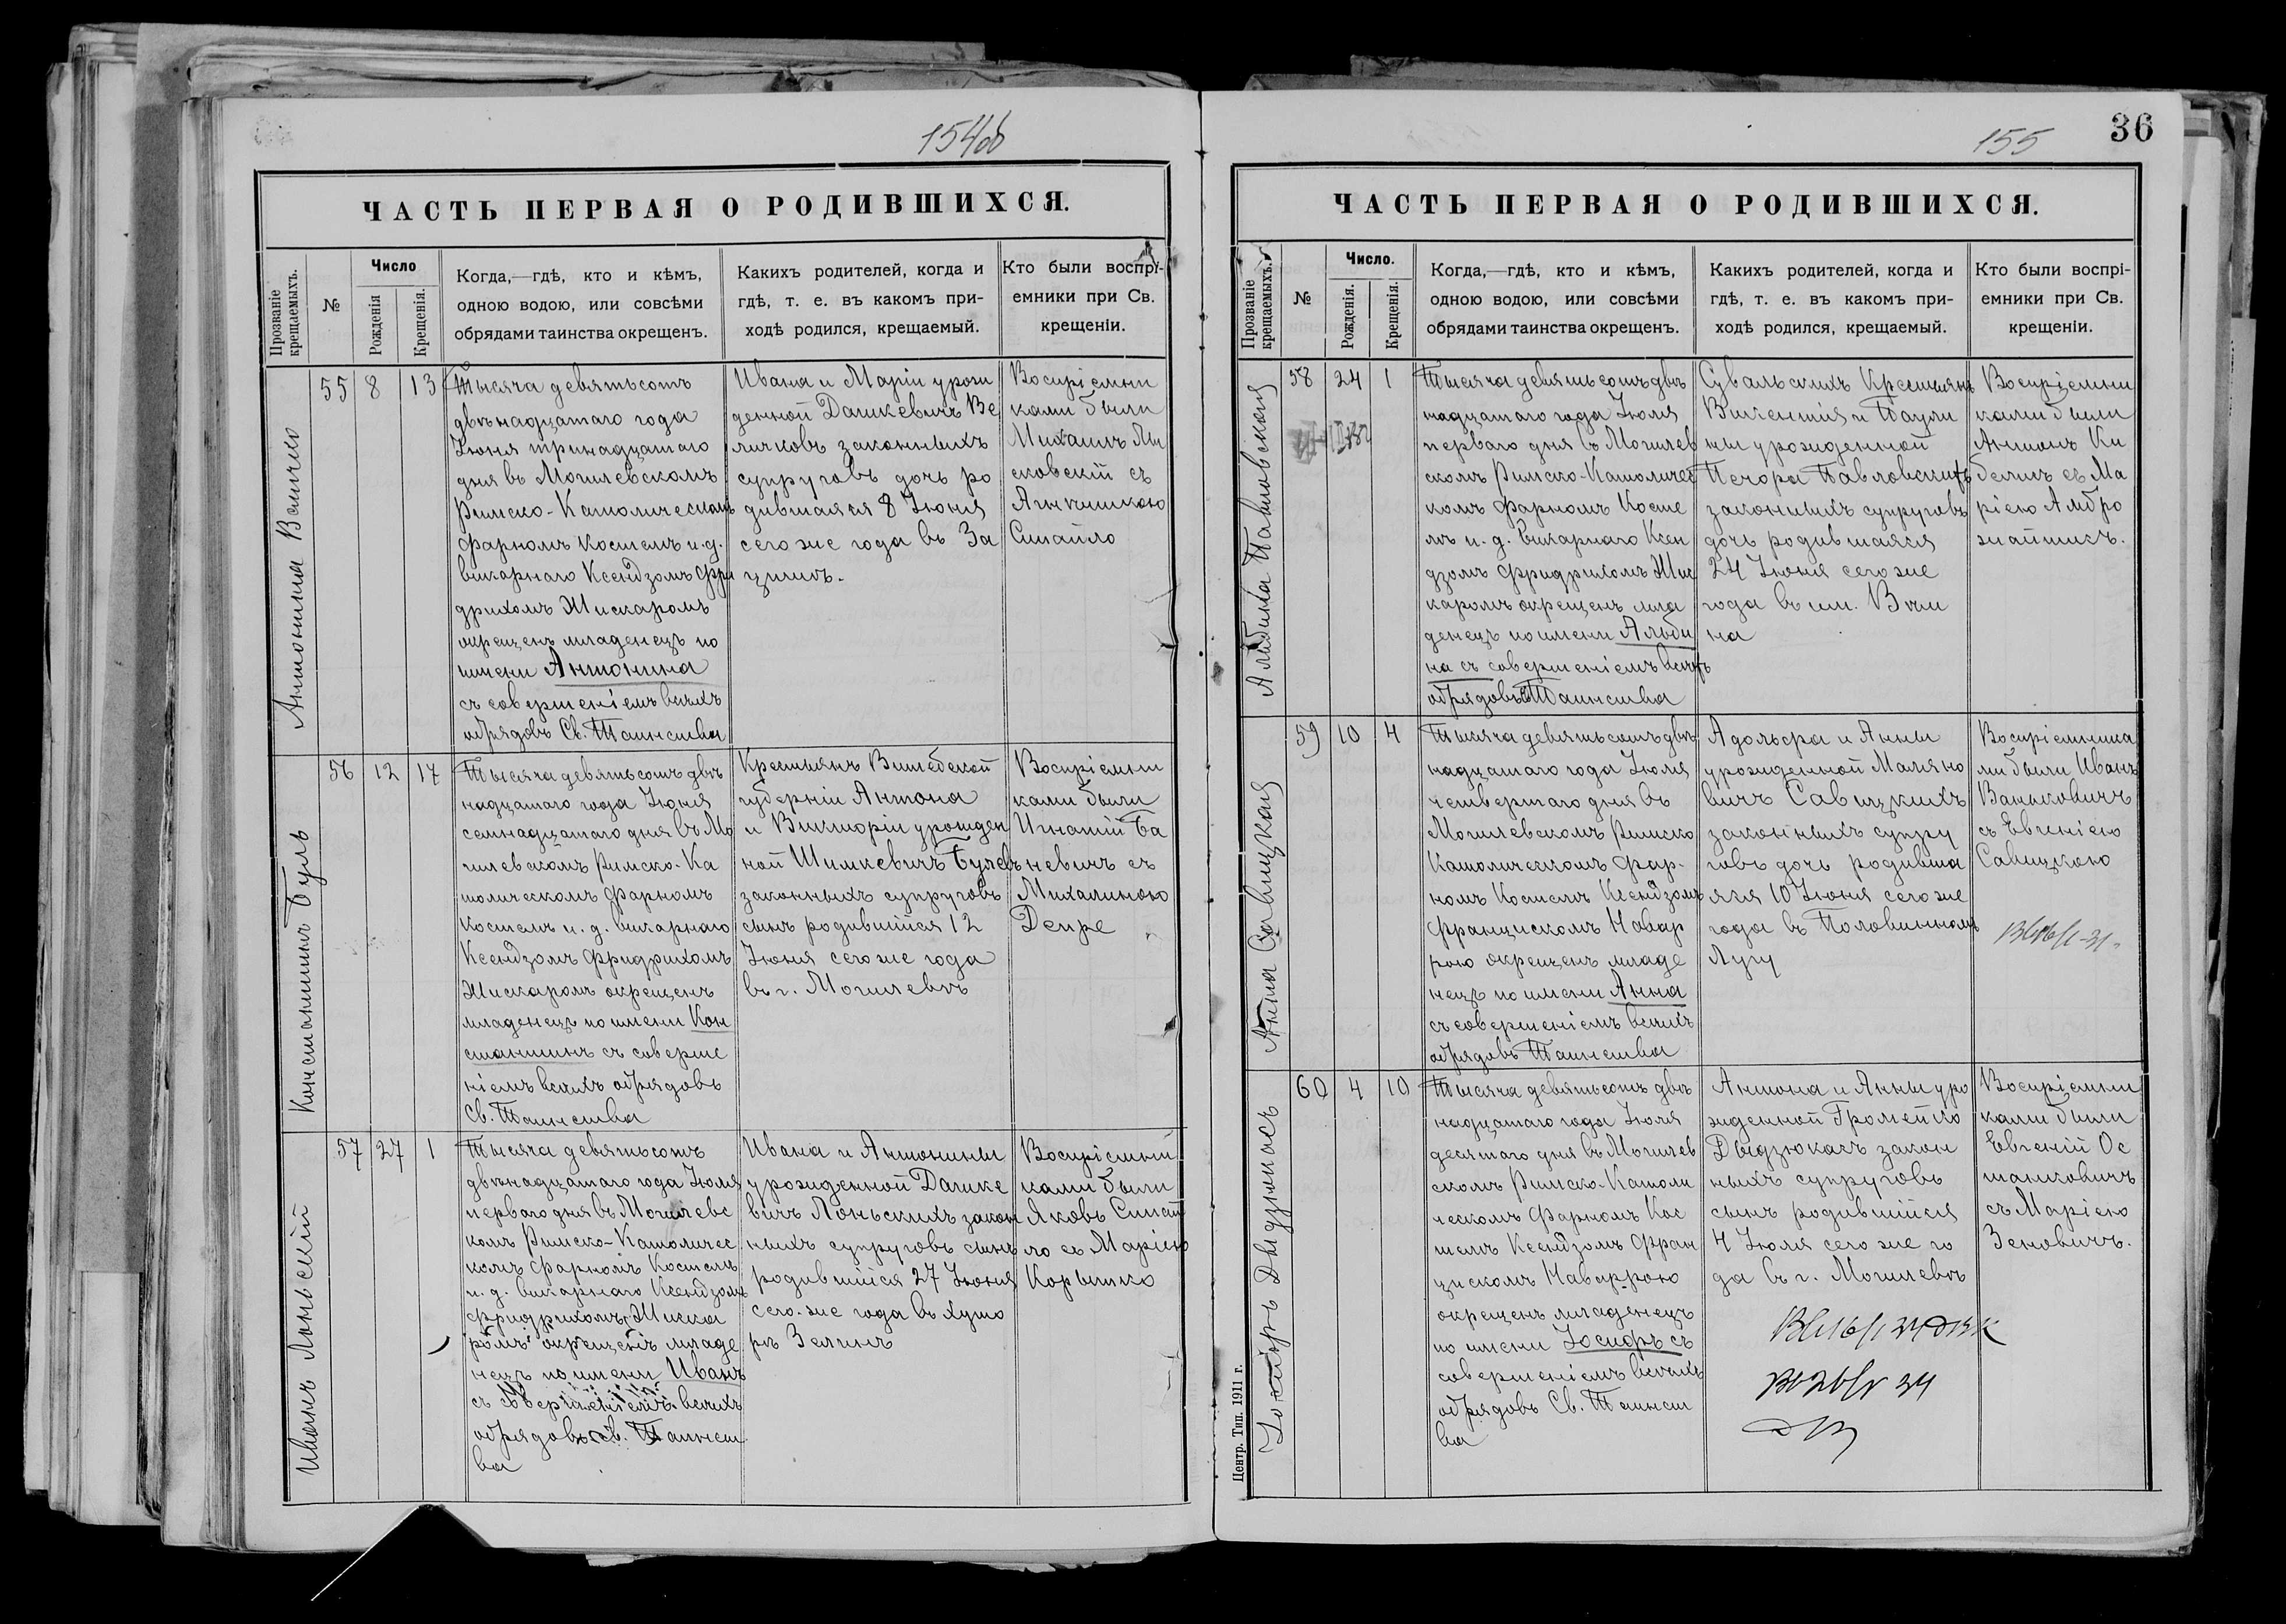 154об
ЧАСТЬ ПЕРВАЯ О РОДИВШИХСЯ.
Прозваніе крещаемыхъ.
№
Число
Рожденія
Крещенія.
Когда,—гдѣ, кто и кѣмъ,
одною водою, или совсѣми
обрядами таинства окрещенъ.
Какихъ родителей, когда и
гдѣ, т. е. въ какомъ при-
ходѣ родился, крещаемый.
Кто были воспрі-
емники при Св.
крещеніи.
Антонина Величко
55
8
13
Тысяча девятьсотъ
двѣнадцатаго года
Іюня тринадцатаго
дня въ Могилевскомъ
Римско-Католическомъ
фарномъ Костелѣ и.д.
викарнаго Ксендзомъ Фри
дрихомъ Жискаромъ
окрещенъ младенецъ по
имени Антонина
съ совершеніемъ всѣхъ
обрядовъ Св. Таинства
Ивана и Маріи урож
денной Дашкевичъ Ве
личковъ законныхъ
супруговъ дочь ро
дившаяся 8 Іюня
сего же года въ За
Воспріемни
ками были
Михаилъ
сковскій съ
Синайло
Константинъ Буль
56
12
17
Тысяча девятьсотъ двѣ
надцатаго года Іюня
семнадцатаго дня въ Мо
гилевскомъ Римско-Ка
толическомъ фарномъ
Костелѣ и. д. викарнаго
Ксендзомъ Фридрихомъ
Жискаромъ окрещенъ
младенецъ по имени Кон
стантинъ съ соверше
ніемъ всѣхъ обрядовъ
Св. Таинства
Крестьянъ Витебской
губерніи Антона
и Викторіи урожден
ной Шимкевичъ Булей
законныхъ супруговъ
сынъ родившійся 12
Іюня сего же года
въ г. Могилевѣ
Воспріемни
ками были
Игнатій Ба
невичъ съ
Михалиною
Иванъ Лоньскій
57
27
1
Тысяча девятьсотъ
двѣнадцатаго года Іюля
перваго дня въ Могилевс
комъ Римско-Католичес
комъ фарномъ Костелѣ
и. д. викарнаго Ксендзомъ
Фридрихомъ Жиска
ромъ окрещенъ младе
нецъ по имени Иванъ
съ совершеніемъ всѣхъ
обрядовъ Св. Таинст
ва
Ивана и Антонины
урожденной Дашке
вичъ Лоньскихъ закон
ныхъ супруговъ сынъ
родившійся 27 Іюня
сего же года въ хуто
рѣ Зелинъ
Воспріемни
ками были
Яковъ Синай
ло съ Маріею
Корытко
155
36
ЧАСТЬ ПЕРВАЯ О РОДИВШИХСЯ.
Прозваніе крещаемыхъ.
№
Число.
Рожденія.
Крещенія.
Когда,—гдѣ, кто и кѣмъ,
одною водою, или совсѣми
обрядами таинства окрещенъ.
Какихъ родителей, когда и
гдѣ, т. е. въ какомъ при-
ходѣ родился, крещаемый.
Кто были воспрі-
емники при Св.
крещеніи.
Альбина Павловская
58
24
1
Тысяча девятьсотъ двѣ
надцатаго года Іюля
перваго дня въ Могилев
скомъ Римско-Католичес
комъ фарномъ Косте
лѣ и. д. викарнаго Ксен
дзомъ Фридрихомъ Жис
каромъ окрещенъ мла
денецъ по имени Альби
на съ совершеніемъ всѣхъ
обрядовъ Таинства
Сувальскихъ Крестьянъ
Викентія и Паули
ны урожденной
Печора Павловскихъ
законныхъ супруговъ
дочь родившаяся
24 Іюня сего же
года въ им.
Воспріемни
ками были
Антонъ Ки
белинъ съ Ма
ріею Амбро
Анна Савицкая
59
10
4
Тысяча девятьсотъ двѣ
надцатаго года Іюля
четвертаго дня въ
Могилевскомъ Римско
Католическомъ фар-
номъ Костелѣ Ксендзомъ
Францискомъ Навар
рою окрещенъ младе
нецъ по имени Анна
съ совершеніемъ всѣхъ
обрядовъ Таинства
Адольфа и Анны
урожденной Маляно
вичъ Савицкихъ
законныхъ супру
говъ дочь родивша
яся 10 Іюня сего же
года въ Половинномъ
Лугу
Воспріемника
ми были Иванъ
Ваньковичъ
съ Евгеніею
Савицкою
Іосифъ Дыдзюкасъ
60
4
10
Тысяча девятьсотъ двѣ
надцатаго года Іюля
десятаго дня въ Могилев
скомъ Римско-Католи
ческомъ фарномъ Кос
телѣ Ксендзомъ Фран
цискомъ Наваррою
окрещенъ младенецъ
по имени Іосифъ съ
совершеніемъ всѣхъ
обрядовъ Св. Таинст
ва
Антона и Анны уро
жденной Громейко
Дыдзюкасъ закон
ныхъ супруговъ
сынъ родившійся
4 Іюля сего же го
да въ г. Могилевѣ
Воспріемни
ками были
Евгеній Ос
танковичъ
съ Маріею
Зеновичъ.
Центр. Тип. 1911 г.